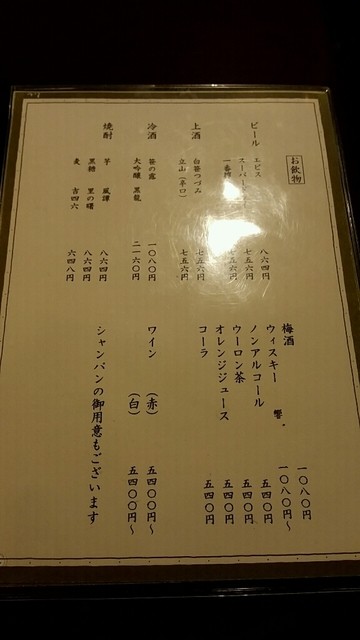 お飲物
ビール　エビス　八六四円
スーパー　七五六円
一番　七五六円
上酒　白笹つづみ　七五六円
立山（辛口）　七五六円
冷酒　笹の露　一〇八〇円
大吟醸　黒龍　二一六〇円
焼酎　芋　風譚　八六四円
黒糖　里の曙　八六四円
麦　吉四六　六四八円
梅酒　一〇八〇円
ウィスキー　響　一〇八〇円～
ノンアルコール　五四〇円
ウーロン茶　五四〇円
オレンジジュース　五四〇円
コーラ　五四〇円
ワイン　（赤）　五四〇〇円～
（白）　五四〇〇円～
シャンパンの御用意もございます